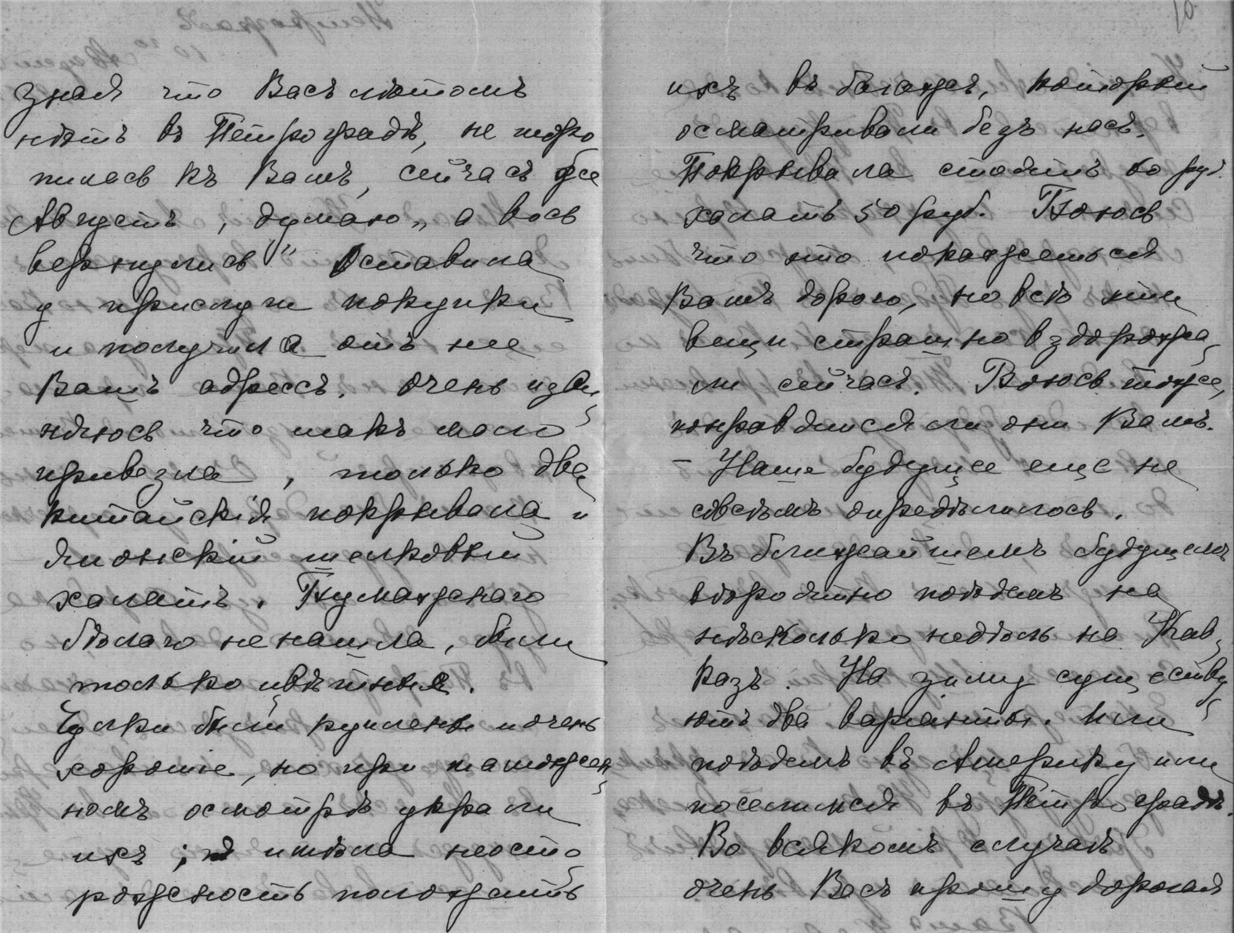 Зная что Васъ лѣтомъ
нѣтъ въ Петроградѣ, не торо
пилась къ Вамъ, сейчасъ уже
Августъ, думаю „а вось
вернулись" Оставила
у прислуги покупки
и получила отъ нее
Вашъ адрессъ. Очень изви
няюсь что такъ мало
привезла, только два
китайскія покрывала и
японскій шелковый
халатъ. Бумажнаго
бѣлаго не нашла, были
только цвѣтные.
Чулки были куплены и очень
хорошіе, но при таможен
номъ осмотрѣ украли
ихъ; я имѣла неосто
рожность положить
ихъ въ багажъ, который
осматривали безъ насъ.
Покрывала стоятъ 60 руб.
халатъ 50 руб. Боюсь
что это покажеться
Вамъ дорого, но всѣ эти
вещи страшно вздорожа
ли сейчасъ. Боюсь тоже,
понравятся ли они Вамъ.
– Наше будущее еще не
совсѣмъ опредѣлилось.
Въ ближайшемъ будущемъ
вѣроятно поѣдемъ на
нѣсколько недѣль на Кав
казъ. На зиму существу
ютъ два варианты. Или
поѣдемъ въ Америку или
поселимся въ Петроградѣ.
Во всякомъ случаѣ
очень Васъ прошу дорогая